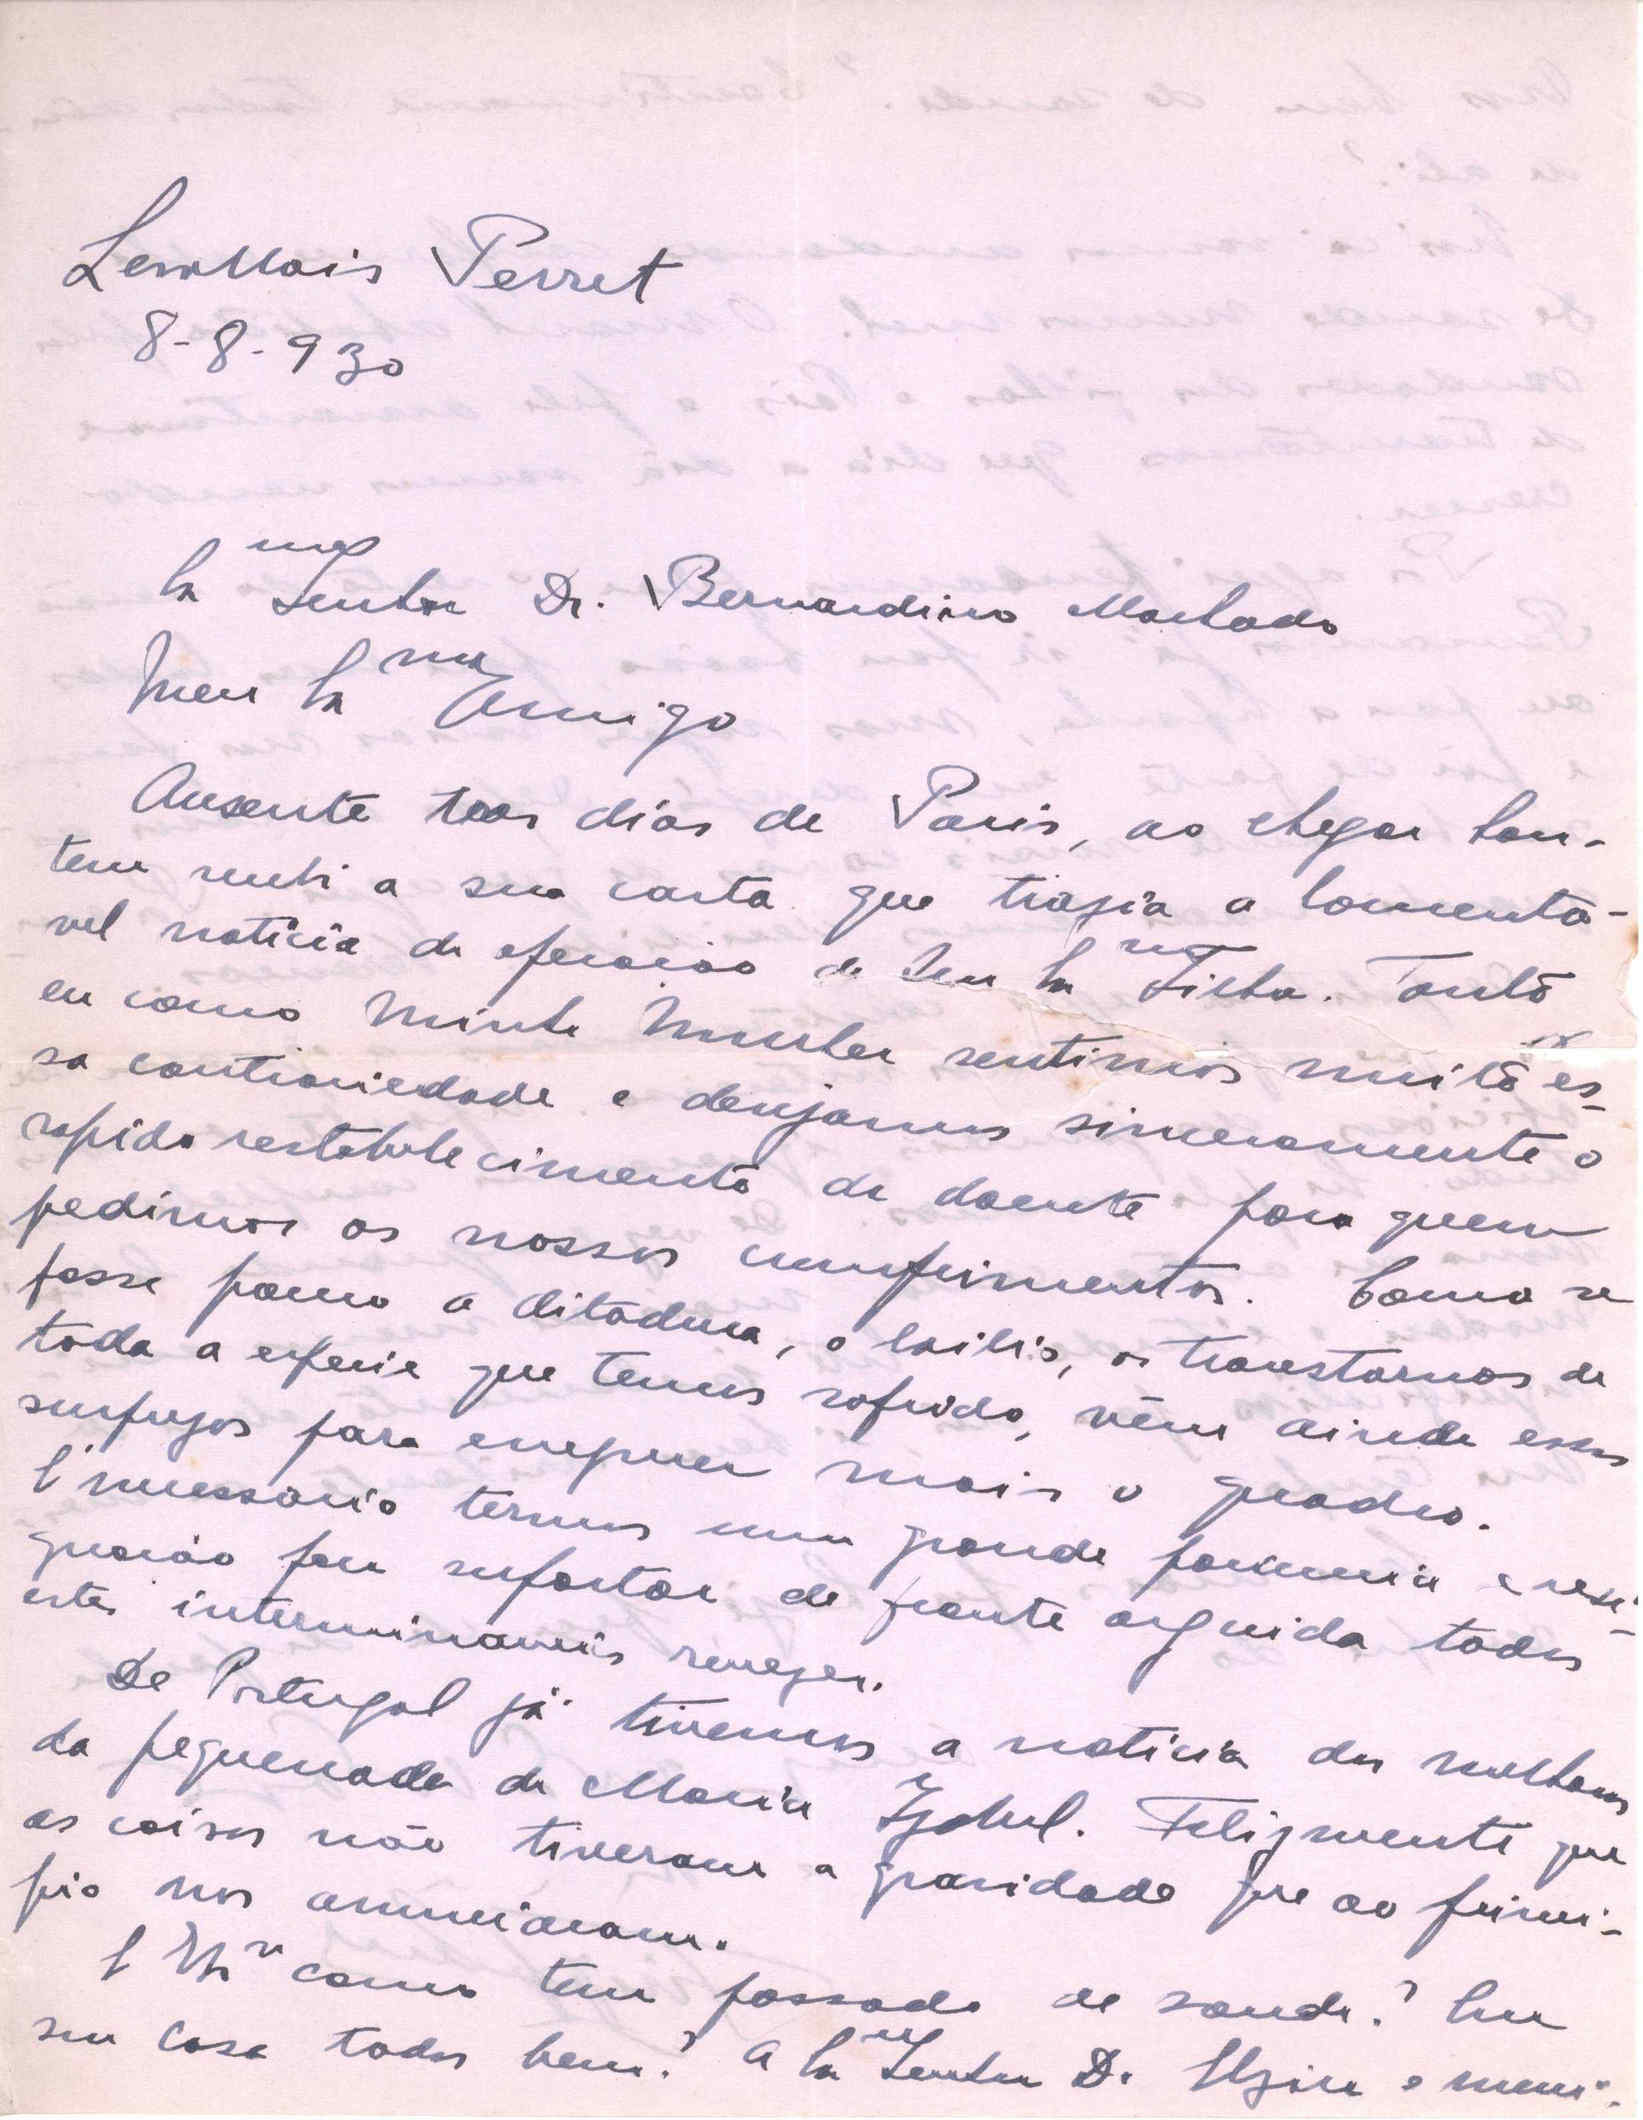 Levallois Perret
8-8-930
Exmo Senhor Dr. Bernardino Machado
Meu Exmo Amigo
Ausente tres dias de Paris, ao chegar hon-
tem recebi a sua carta que trazia a lamenta-
vel noticia da operação de Sua Exma Filha. Tanto
eu como minha Mulher sentimos muito es-
sa contrariedade e desejamos sinceramente o
rapido restabelecimento da doente para quem
pedimos os nossos cumprimentos. Como se
fosse pouco a ditadura, o exilio, os transtornos de
toda a especie que temos sofrido, vêm ainda esses
para enegrecer mais o quadro.
E' necessario termos uma grande paciencia e resi-
gnação para suportar de fronte erguida todos
estes interminaveis revezes.
De Portugal já tivemos a noticia das melhoras
da pequenada da Maria Izabel. Felizmente que
as coisas não tiveram a gravidade que ao princi-
pio nos anunciaram.
E V. Exa como tem passado de saude? Em
sua casa todos bem? A Exma Senhora D. Elzira e meni-